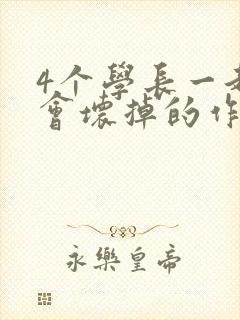 4个學長一
會壞掉的作
永樂皇帝